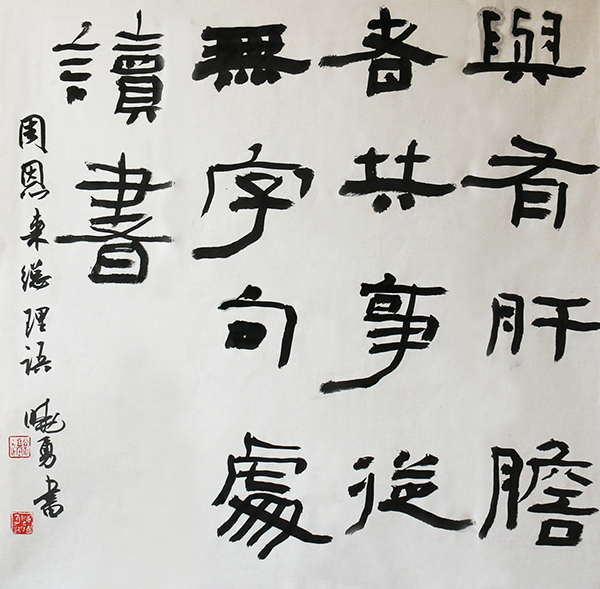 與有肝膽
者共事從
無字句處
讀書
周恩来總理語 曉勇書